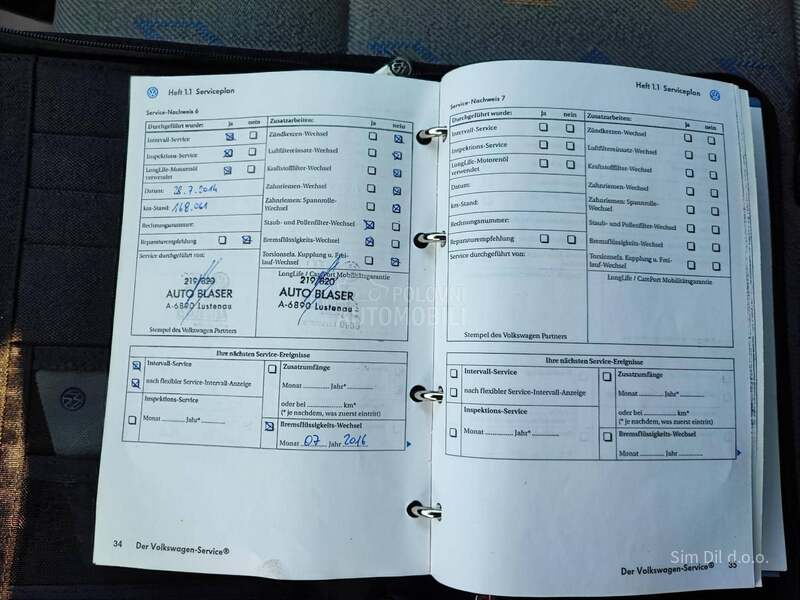 Heft 1.1 Serviceplan
Service-Nachweis 6
Durchgeführt wurde: ja nein
Intervall-Service
Inspektions-Service
LongLife-Motorenöl
verwendet
Datum: 28.7.2014
km-Stand: 168.061
Rechnungsnummer:
Reparaturempfehlung
Service durchgeführt von:
219/820
AUTO BLASER
A-6890 Lustenau
Stempel des Volkswagen Partners
Zusatzarbeiten: ja nein
Zündkerzen-Wechsel
Luftfiltereinsatz-Wechsel
Kraftstofffilter-Wechsel
Zahnriemen-Wechsel
Zahnriemen: Spannrolle-
Wechsel
Staub- und Pollenfilter-Wechsel
Bremsflüssigkeits-Wechsel
Torsionsela. Kupplung u. Frei-
lauf-Wechsel
LongLife / CarePort Mobilitätsgarantie
219/820
AUTO BLASER
A-6890 Lustenau
Ihre nächsten Service-Ereignisse
Intervall-Service
nach flexibler Service-Intervall-Anzeige
Inspektions-Service
Monat Jahr*
Zusatzumfänge
Monat Jahr*
oder bei km*
(* je nachdem, was zuerst eintritt)
Bremsflüssigkeits-Wechsel
Monat 07 Jahr 2016
34 Der Volkswagen-Service®
Heft 1.1 Serviceplan
Service-Nachweis 7
Durchgeführt wurde: ja nein
Intervall-Service
Inspektions-Service
LongLife-Motorenöl
verwendet
Datum:
km-Stand:
Rechnungsnummer:
Reparaturempfehlung
Service durchgeführt von:
Stempel des Volkswagen Partners
Zusatzarbeiten: ja nein
Zündkerzen-Wechsel
Luftfiltereinsatz-Wechsel
Kraftstofffilter-Wechsel
Zahnriemen-Wechsel
Zahnriemen: Spannrolle-
Wechsel
Staub- und Pollenfilter-Wechsel
Bremsflüssigkeits-Wechsel
Torsionsela. Kupplung u. Frei-
lauf-Wechsel
LongLife / CarePort Mobilitätsgarantie
Ihre nächsten Service-Ereignisse
Intervall-Service
nach flexibler Service-Intervall-Anzeige
Inspektions-Service
Monat Jahr*
Zusatzumfänge
Monat Jahr*
oder bei km*
(* je nachdem, was zuerst eintritt)
Bremsflüssigkeits-Wechsel
Monat Jahr
Der Volkswagen-Service® 35
POLOVNI
AUTOMOBILI
Sim Dil d.o.o.